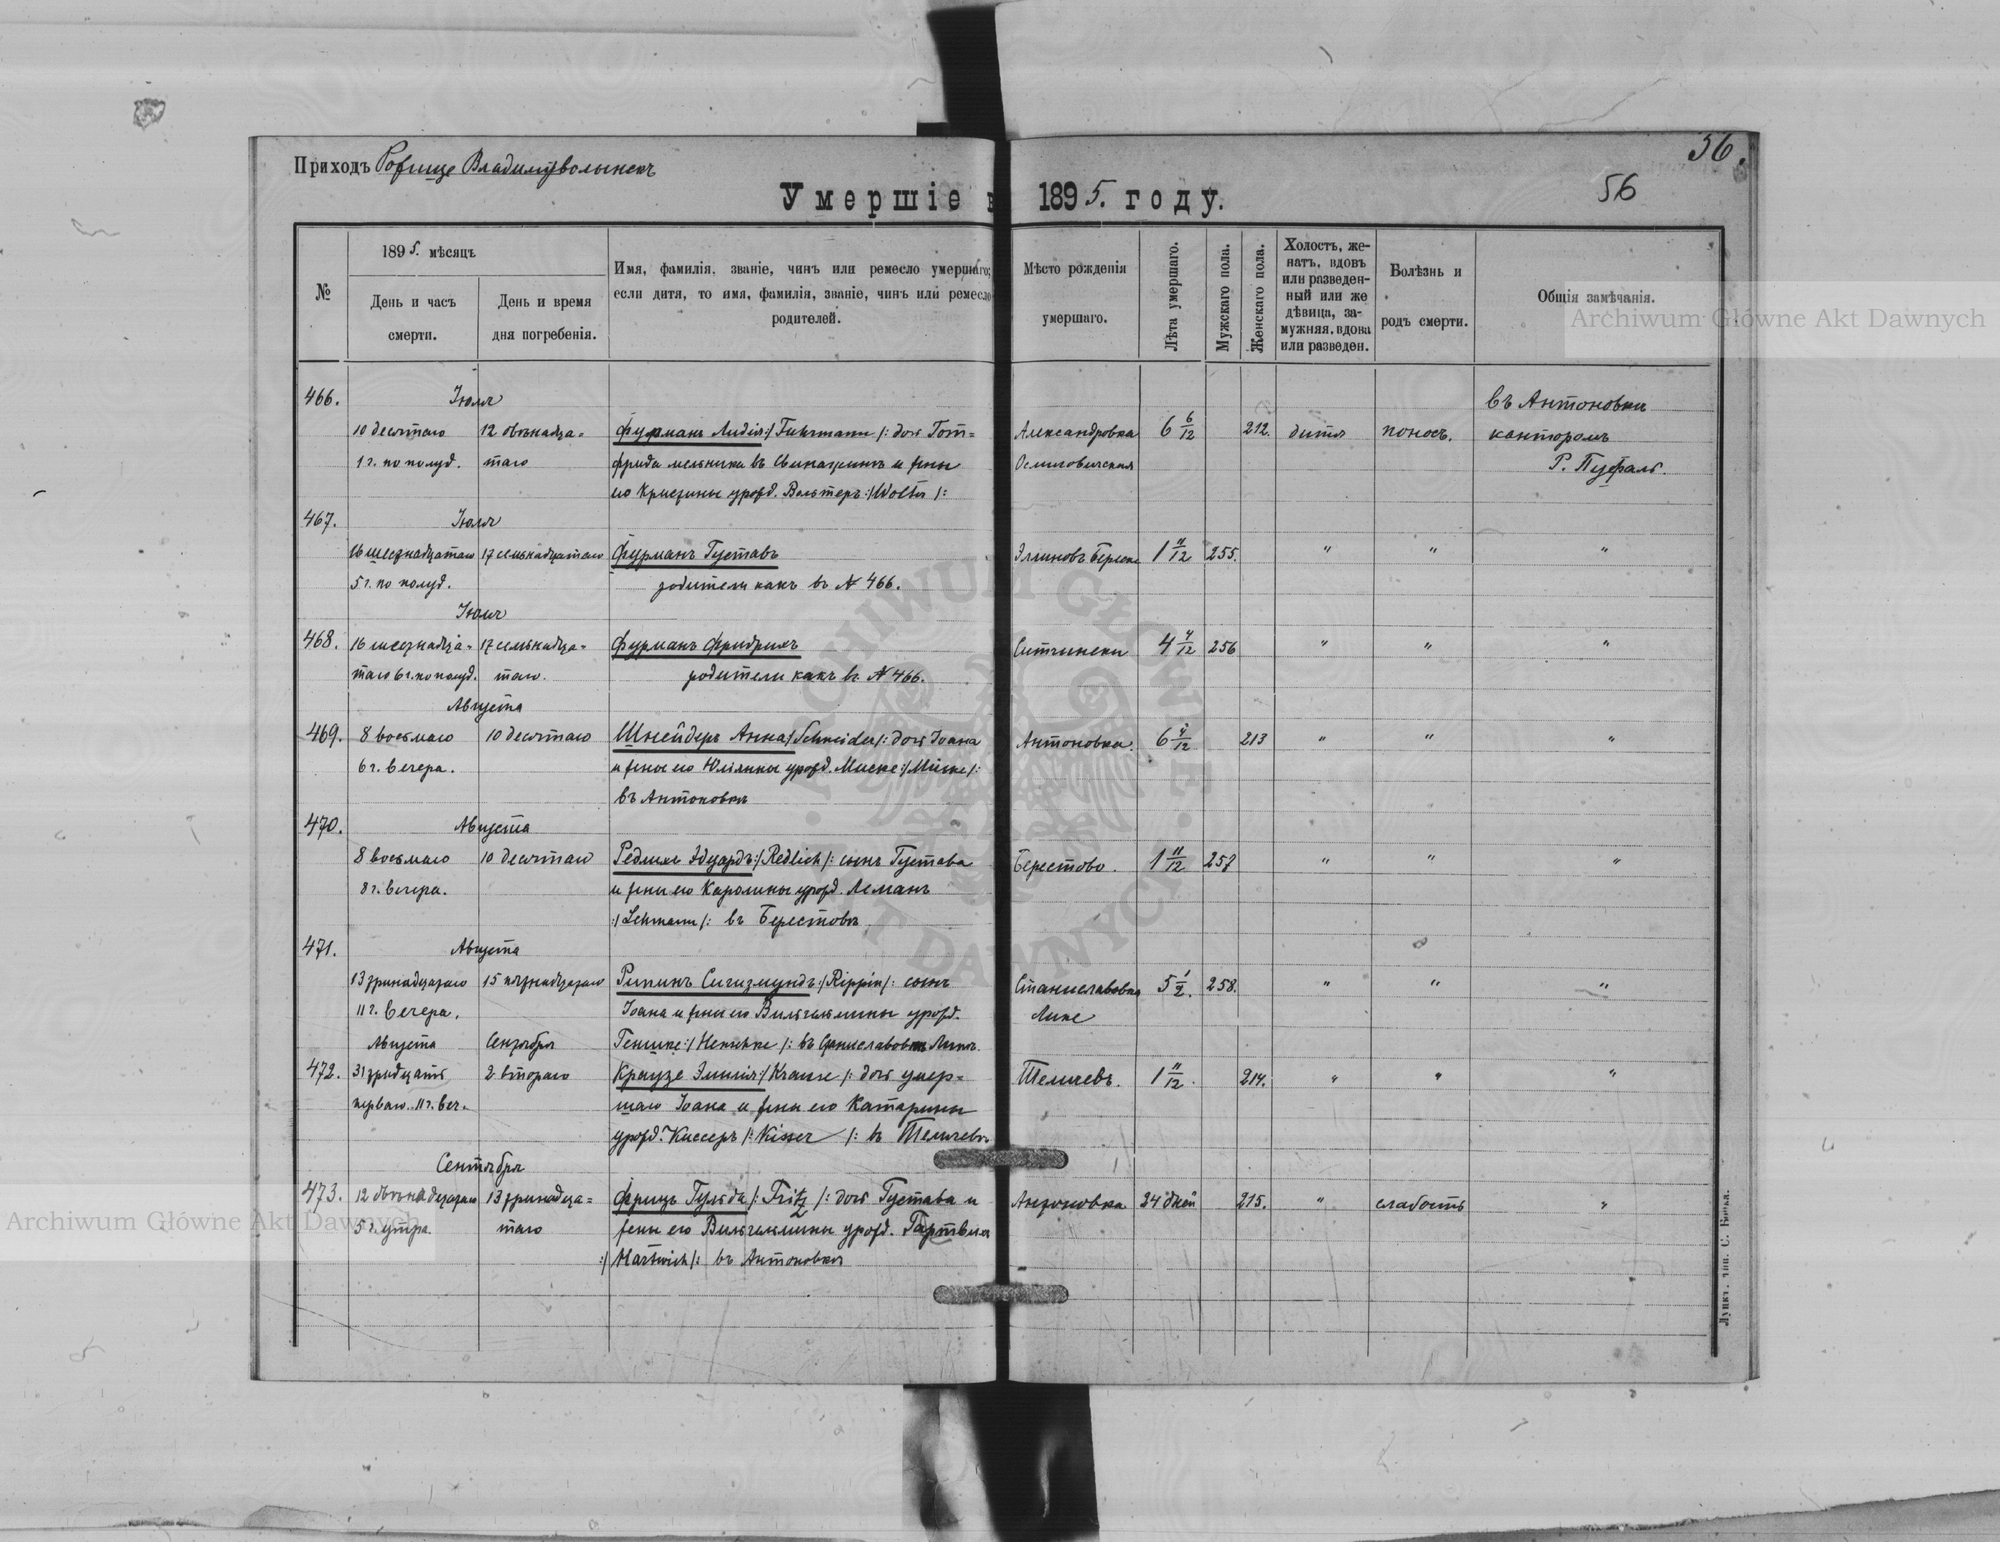 36.
Приходъ Рожище Владимірволынск
56
Умершіе в 1895. году.
№
1895. мѣсяцъ
День и часъ смерти.
День и время дня погребенія.
Имя, фамилія, званіе, чинъ или ремесло умершаго;
если дитя, то имя, фамилія, званіе, чинъ или ремесло
родителей.
Мѣсто рожденія
умершаго.
Лѣта умершаго.
Мужскаго пола.
Женскаго пола.
Холостъ, же-
натъ, вдовъ
или разведен-
ный или же
дѣвица, за-
мужняя, вдова
или разведен.
Болѣзнь и
родъ смерти.
Общія замѣчанія.
Archiwum Główne Akt Dawnych
466. Іюля въ Антоновкѣ
10 десятаго 12 двѣнадца= Фурманъ Лидія :/Fuhrmann/: дочь Гот= Александровка 6 6/12 212. дитя поносъ. канторомъ
1 ч. по полуд. таго фрида мельника въ и жены Р. Пуфаль.
его урожд. Вольтеръ :/Wolter/:
467. Іюля
16 шестнадцатаго 17 семьнадцатаго Фурманъ Густавъ 1 11/12 255. " " "
5 ч. по полуд. родители какъ въ № 466.
Іюля
468. 16 шестнадца= 17 семьнадца= Фурманъ Фридрихъ 4 4/12 256 " " "
таго 6 ч. по полуд. таго. родители какъ въ № 466.
Августа
469. 8 восьмаго 10 десятаго Шнейдеръ Анна /Schneider/: дочь Іоана Антоновка. 6 4/12 213 " " "
6 ч. вечера. и жены его Юліянны урожд. Миске :/Miske/:
въ Антоновкѣ
470. Августа
8 восьмаго 10 десятаго Редлихъ Эдуардъ :/Redlich/: сынъ Густава Берестово. 1 11/12 257 " " "
8 ч. вечера. и жены его Каролины урожд. Леманъ
:/Lehmann/: въ Берестовѣ
471. Августа
13 тринадцатаго 15 пятнадцатаго Рипинъ Сигизмундъ :/Rippin/: сынъ Станиславовка 5 1/2. 258. " " "
11 ч. вечера. Іоана и жены его Вильгельмины урожд. Липе
Августа Сентября Геншке :/Henschke/: въ Станиславовкѣ Липѣ.
472. 31 тридцать 2 втораго Краузе Эмилія :/Krause/: дочь умер= Темчевъ. 1 11/12. 214. " " "
перваго. 11 ч. веч. шаго Іоана и жены его Катарины
урожд. Киссеръ /: Kisser /: въ Темчевѣ
Сентября
473. 12 двѣнадцатаго 13 тринадца= Фрицъ Гульда /: Fritz /: дочь Густава и Антоновка 24 дней 215. " слабость "
5 ч. утра. таго жены его Вильгельмины урожд. Гартвихъ
:/Hartwich/: въ Антоновкѣ
Archiwum Główne Akt Dawnych
ARCHIWUM GŁÓWNE AKT DAWNYCH
Луцкъ. тип. С. Бонка.